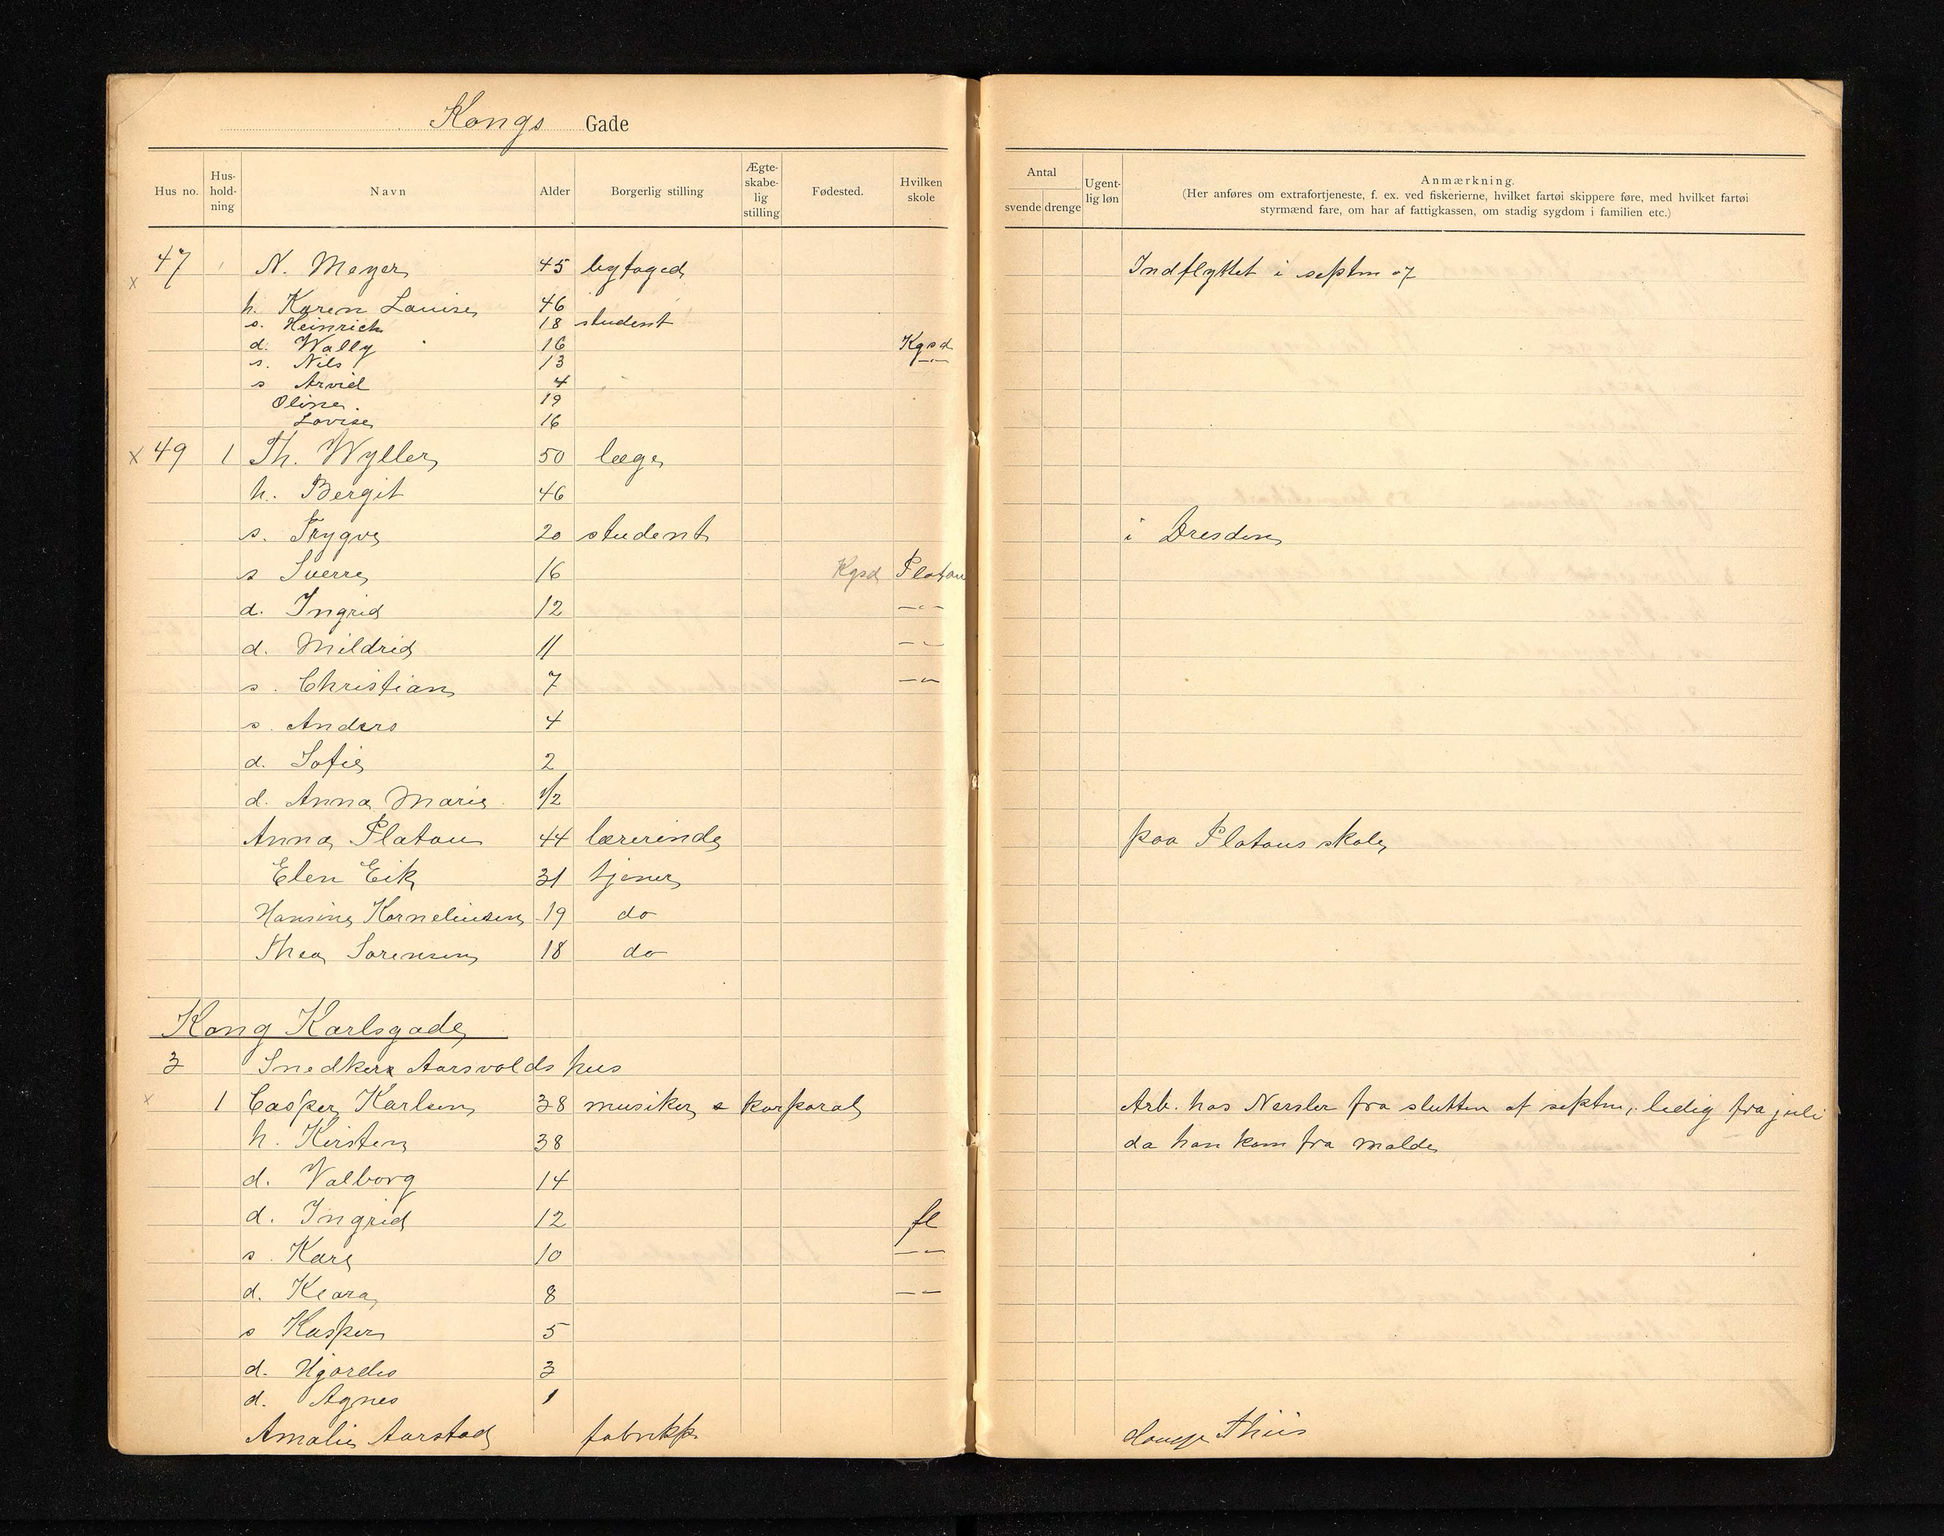 Kongs Gade
Hus no. Hus-hold-ning Navn Alder Borgerlig stilling Ægte-skabe-lig stilling Fødested. Hvilken skole Antal svende drenge Ugent-lig løn Anmærkning.
(Her anføres om extrafortjeneste, f. ex. ved fiskerierne, hvilket fartøi skippere føre, med hvilket fartøi
styrmænd fare, om har af fattigkassen, om stadig sygdom i familien etc.)
x 47 N. Meyer 45 byfoged Indflyttet i septm 07
h. Karen Louise 46
s. Heinrich 18 student
d. Wally 16 Kgsd
s. Nils 13 —"—
s Arvid 4
Oline. 19
Lovise 16
x 49 1 Th. Wyller 50 læge
h. Bergit 46
s. Trygve 20 student i Dresden
s Sverre 16 Kgsd Platou
d. Ingrid 12 —"—
d. Mildrid 11 —"—
s. Christian 7 —"—
s. Anders 4
d. Sofie 2
d. Anna Marie 1/2
Anna Platou 44 lærerinde paa Platous skole
Elen Eik 31 tjener
Hansine Korneliusen 19 do
Thea Sørensen 18 do
Kong Karlsgade
3 Snedker Aarsvolds hus
x 1 Casper Karlsen 38 musiker & korporal Arb. hos Nersler fra slutten af septm, ledig fra juli
h. Kirsten 38 da han kom fra Molde
d. Valborg 14
d. Ingrid 12 fl
s. Kare 10 —"—
d. Klara 8 —"—
s Kasper 5
d. Hjørdis 3
d. Agnes 1
Amalie Aarstad fabrikkp. Houge Thiis